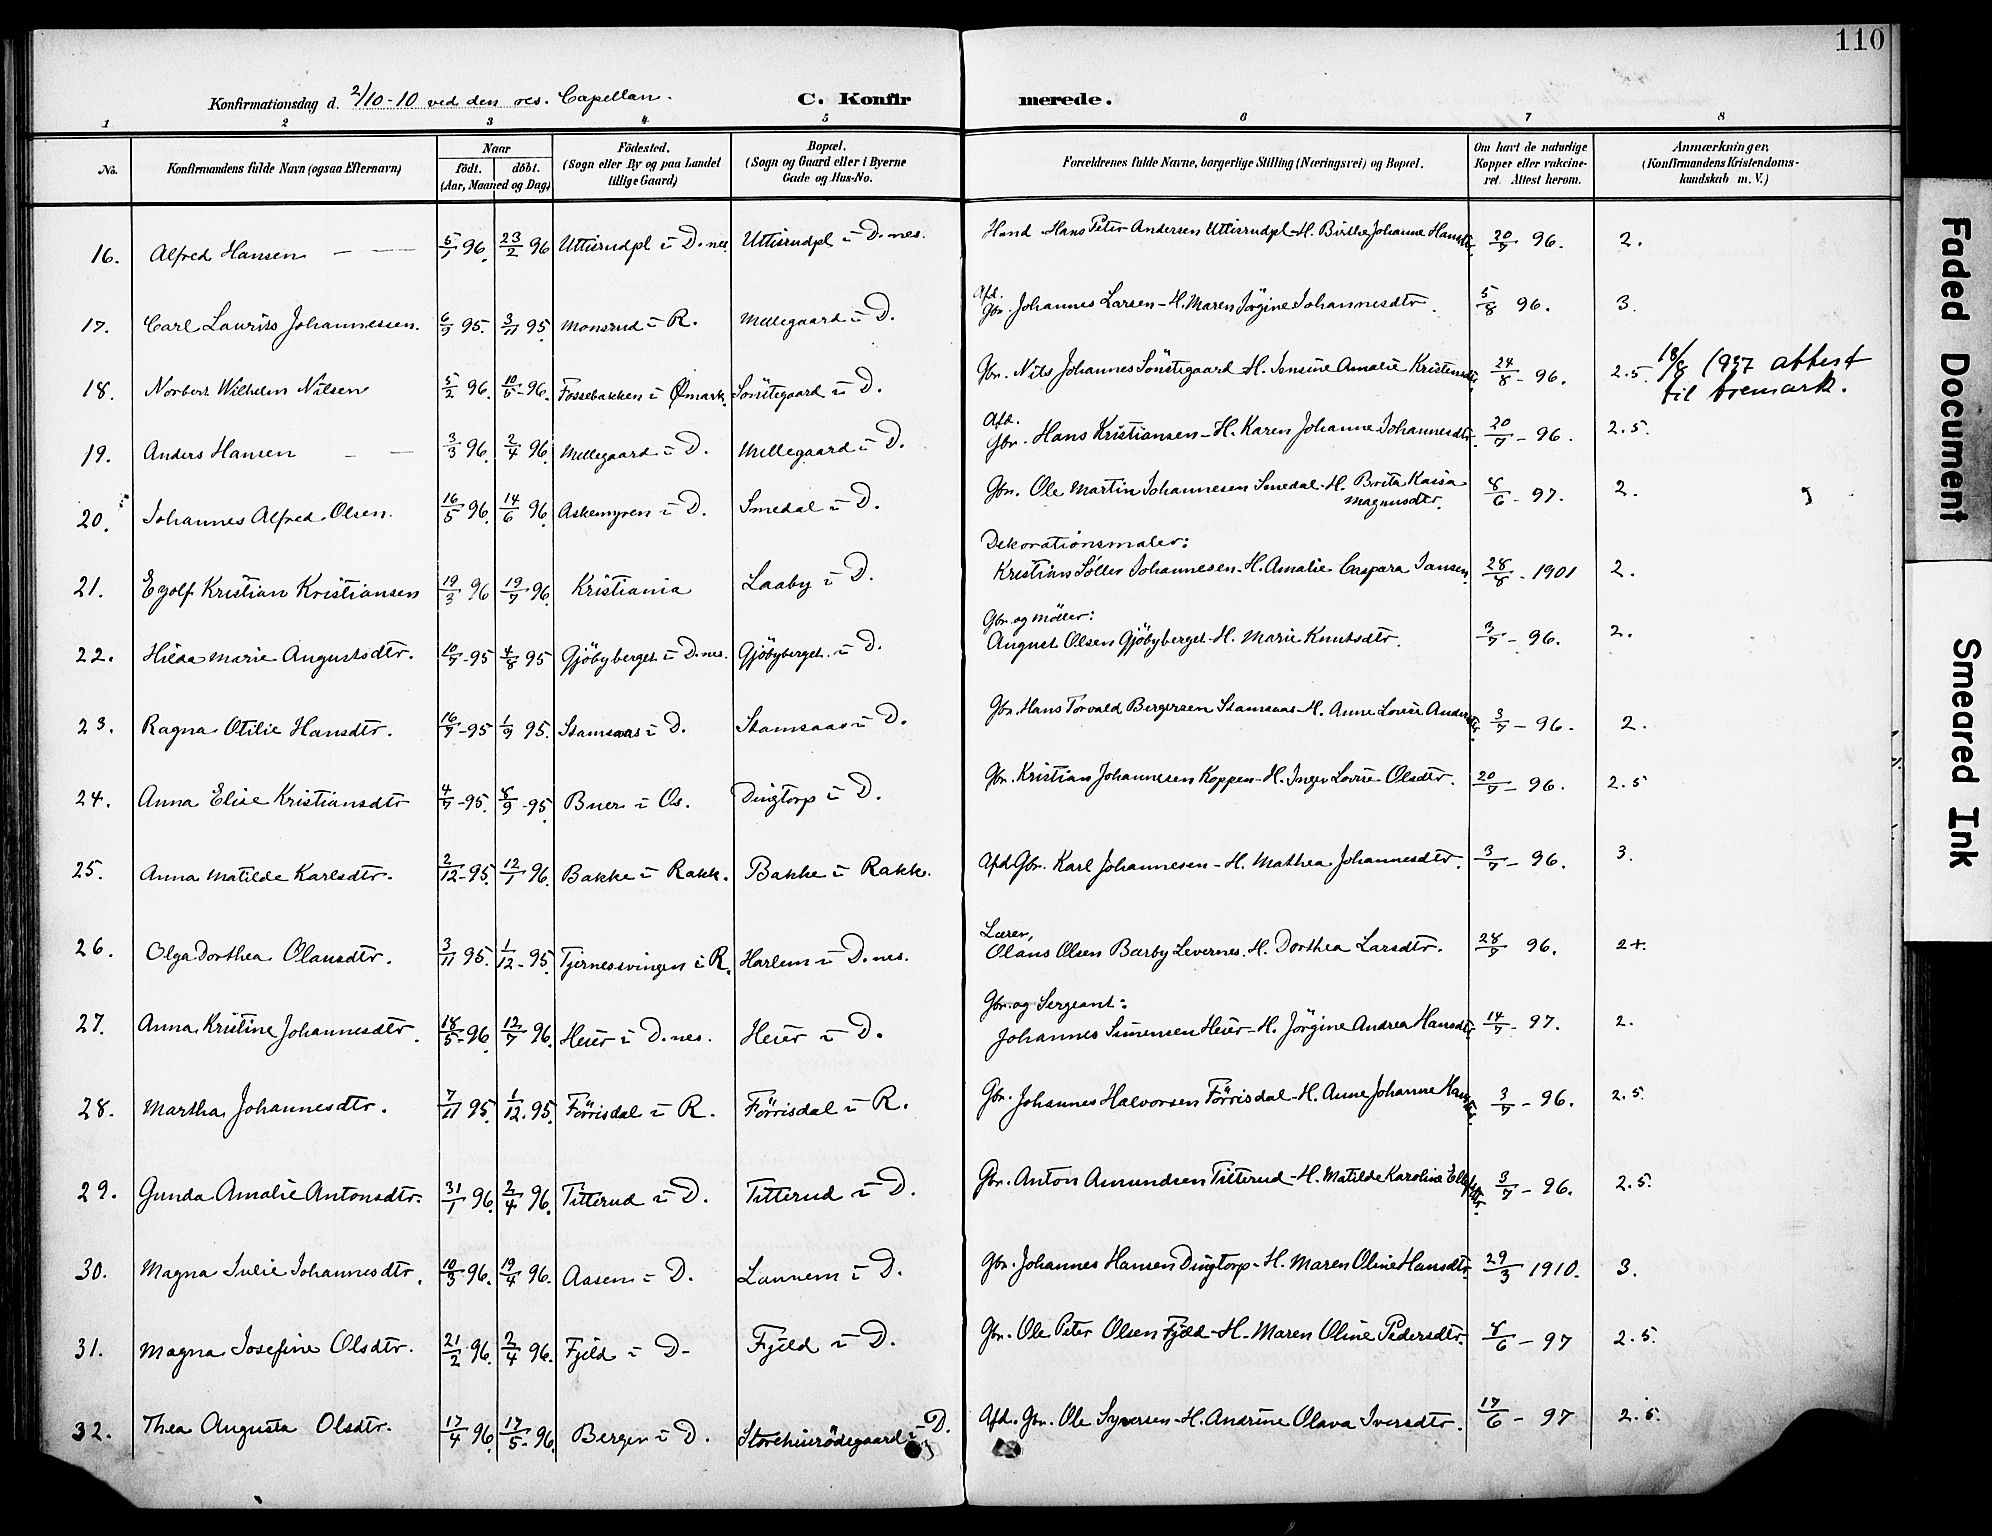 110
Konfirmationsdag d. 2/10-10 ved den res. Capellan. C. Konfirmerede.
1 2 3 4 5 6 7 8
No. Konfirmandens fulde Navn (ogsaa Efternavn) Naar födt. döbt. (Aar, Maaned og Dag) Födested. (Sogn eller By og paa Landet tillige Gaard) Bopæl. (Sogn og Gaard eller i Byerne Gade og Hus-No. Forældrenes fulde Navne, borgerlige Stilling (Næringsvei) og Bopæl. Om havt de naturlige Kopper eller vakcineret. Attest herom. Anmærkninger, (Konfirmandens Kristendomskundskab m. V.)
16. Alfred Hansen 5/1 96. 23/2 96 Uttisrudpl i D.nes. Uttisrudpl i D.nes. Hans Peter Andersen Uttisrudpl - H. Birthe Johanne Hansdtr. 20/7 96. 2.
17. Carl Laurits Johannessen. 6/9 95. 3/11 95. Monsrud i R. Mellegaard i D. Afd. Gbr. Johannes Larsen - H. Maren Jörgine Johannesdtr. 5/8 96. 3.
18. Norbert Wilhelm Nilsen 5/2 96. 10/5 - 96. Fossebakken i Ømark. Sönstegaard i D. Gbr. Nils Johannes Sönstegaard - H. Jensine Amalie Kristensdtr. 24/8 - 96. 2.5. 18/8 1937 attest til tremark.
19. Anders Hansen 3/3 96. 2/4 96. Mellegaard i D. Mellegaard i D. Afd. Gbr. Hans Kristiansen - H. Karen Johanne Johannesdtr. 20/7 - 96. 2.5.
20. Johannes Alfred Olsen. 16/5 96. 14/6 96. Askemyren i D. Smedal i D. Gbr. Ole Martin Johannesen Smedal - H. Brita Kaisa Magnusdtr. 8/6 - 97. 2.
21. Egolf Kristian Kristiansen 19/3 96 19/7 96. Kristiania Laaby i D. Dekorationsmaler: Kristian Söller Johannesen - H. Amalie Caspara Jansen. 28/8 - 1901 2.
22. Hilda Marie Augustsdtr. 10/7 - 95 4/8 95 Gjöbyberget i D.nes. Gjöbyberget i D. Gbr. og Möller: August Olsen Gjöbyberget - H. Marie Knutsdtr. 3/7 - 96. 2.
23. Ragna Otilie Hansdtr. 16/7 - 95 1/9 95. Stamsaas i D. Stamsaas i D. Gbr. Hans Torvald Bergersen Stamsaas - H. Anne Lovise Andersdtr. 3/7 - 96. 2.
24. Anna Elise Kristiansdtr 4/7 - 95. 8/9 - 95. Buer i Os. Dingtorp i D. Gbr. Kristian Johannesen Koppen - H. Inger Lovise Olsdtr. 20/7 - 96. 2.5
25. Anna Matilde Karlsdtr. 2/12 - 95. 12/1 96. Bakke i Rakk. Bakke i Rakk. Afd Gbr. Karl Johannesen - H. Mathea Johannesdtr. 3/7 - 96. 3.
26. Olga Dorthea Olausdtr. 3/11 95. 1/12 - 95. Tjernessvingen i R. Harlem i D.nes. Lærer, Olaus Olsen Bærby Levernes. H. Dorthea Larsdtr. 28/7 96. 2+.
27. Anna Kristine Johannesdtr. 18/5 - 96 12/7 96. Heier i D.nes. Heier i D. Gbr. og Sergeant: Johannes Simensen Heier - H. Jörgine Andrea Hansdtr. 14/7 - 97. 2.
28. Martha Johannesdtr. 7/11 95. 1/12. 95. Förrisdal i R. Förrisdal i R. Gbr. Johannes Halvorsen Förrisdal - H. Anne Johanne Hansdtr. 3/7 - 96. 2.5.
29. Gunda Amalie Antonsdtr. 31/1 96. 2/4 96. Titterud i D. Titterud i D. Gbr. Anton Amundsen Titterud - H. Matilde Karoline 3/7 - 96. 2.5.
30. Magna Julie Johannesdtr. 10/3 96. 19/4 96. Aasem i D. Lannem i D. Gbr. Johannes Hansen Dingtorp - H. Maren Oline Hansdtr. 29/3 1910. 3.
31. Magna Josefine Olsdtr. 21/2 96. 2/4 96. Fjeld i D. Fjeld i D. Gbr. Ole Peter Olsen Fjeld - H. Maren Oline Pedersdtr. 8/6 - 97 2.5.
32. Thea Augusta Olsdtr. 17/4 96. 17/5 - 96. Bergen i D. Storehierödegaard i D. Afd. Gbr. Ole Syversen - H. Andrine Olava Iversdtr. 17/6 - 97 2.5.
Faded Document
Smeared Ink